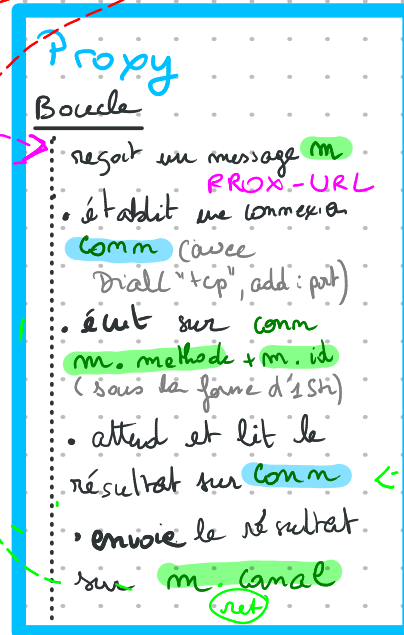 Proxy
Boucle
reçoit un message m
PROX-URL
• établit une connexion
Conn (avec
Dial("tcp", add : port)
• écrit sur conn
m. methode + m. id
(sous la forme d'1 Str)
• attend et lit le
résultat sur Conn
• envoie le résultat
sur m. canal
ret